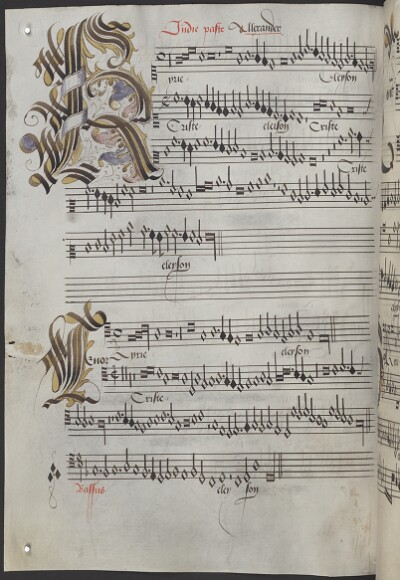 In die pasce Allexander
yrie Eleyson
Criste eleyson Criste
Criste
eleyson
Enor Kyrie eleyson
Criste
Bassus eley son